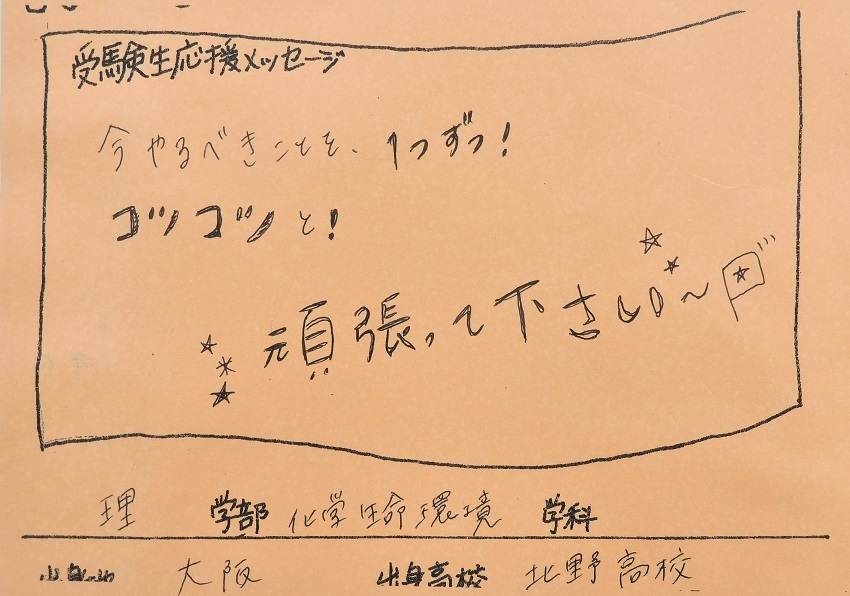 受験生応援メッセージ
今やるべきことを、1つずつ!
コツコツと!
頑張って下さい〜
理 学部 化学生命環境 学科
大阪 出身高校 北野高校